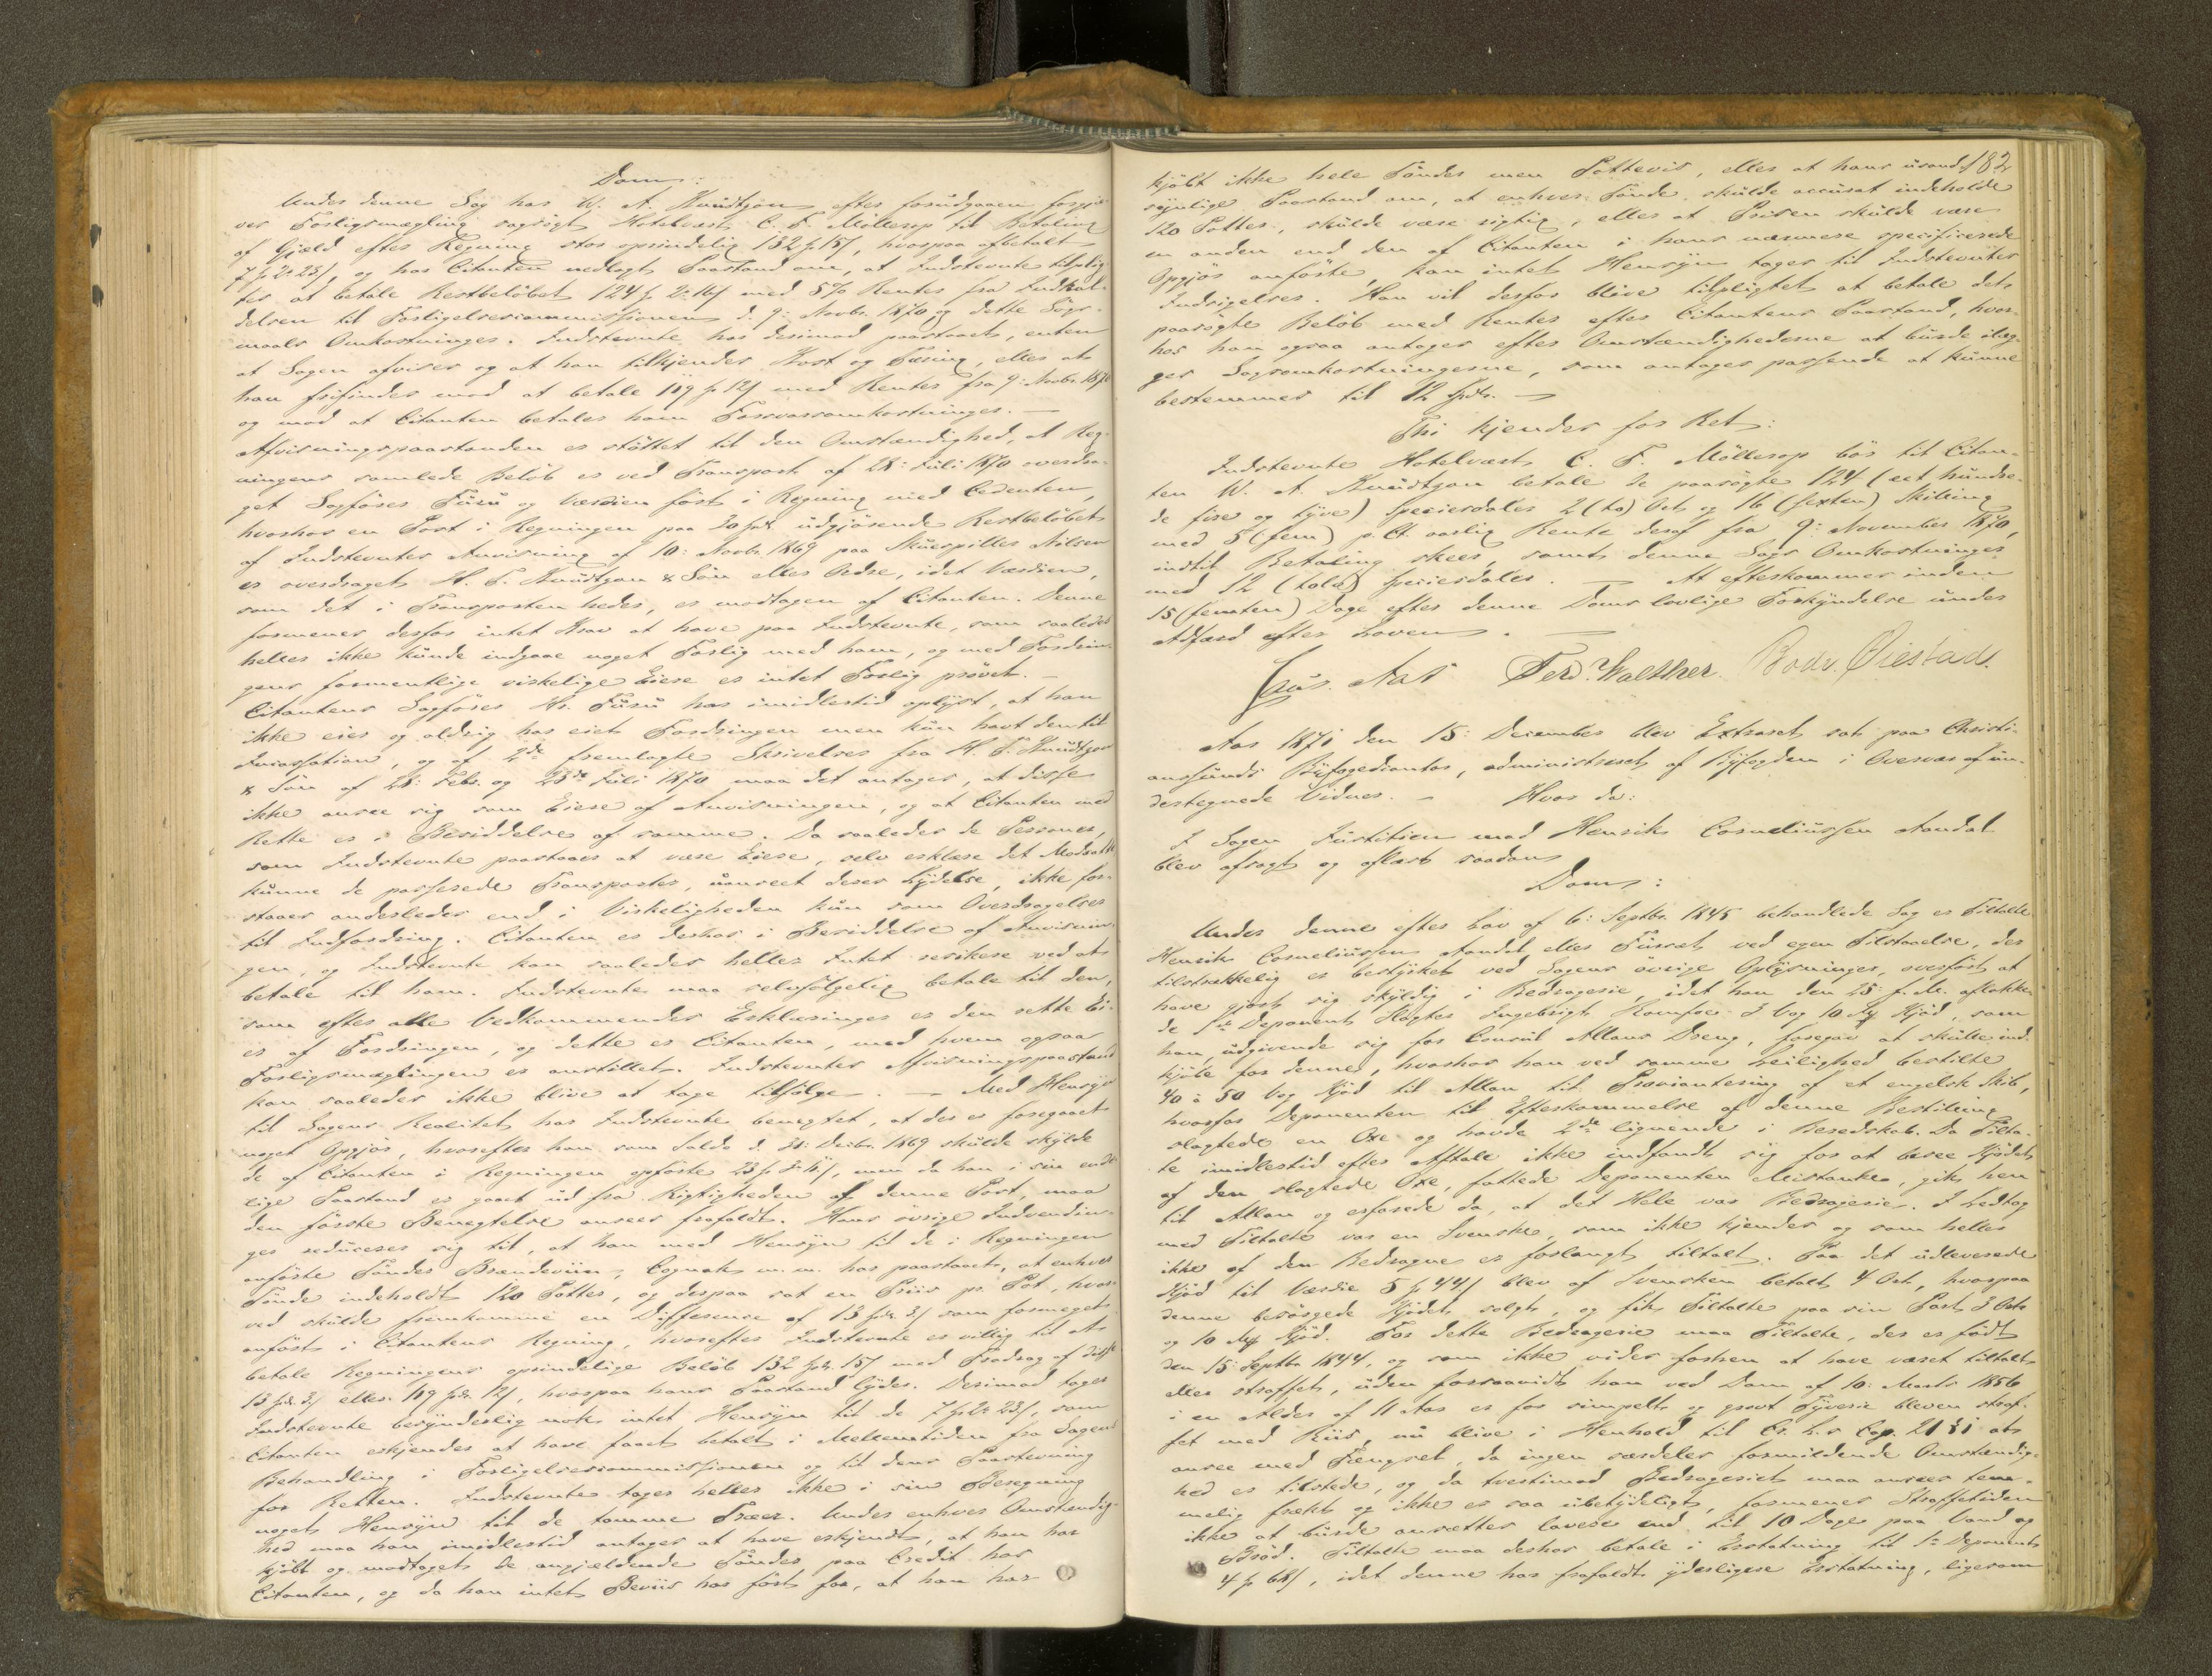 Dom:
Under denne Sag har W. A. Knudtzon efter forudgaaen forgjæ-
ves Forligsmægling sagsøgt Hotelvært C. F. Møllerop til Betaling
af Gjæld efter Regning stor oprindelig 132 p 15/, hvorpaa afbetalt
7 p 2. 23/, og har Citanten nedlagt Paastand om, at Indstevnte tilplig-
tes at betale Restbeløbet 124 p. 2. 16/ med 5% Renter fra Indkal-
delsen til Forligelsescommissionen d. 9: Novbr. 1870 og dette Søgs-
maals Omkostninger. Indstevnte har derimod paastaaet, enten
at Sagen afvises og at han tilkjendes Kost og Tæring, eller at
han frifindes mod at betale 119 p 12/ med Renter fra 9: Novbr. 1870
og mod at Citanten betaler ham Forsvarsomkostninger. —
Afvisningspaastanden er støttet til den Omstændighed, at Reg-
ningens samlede Beløb er ved Transport af 28: Juli 1870 overdra-
get Sagfører Furu og Værdien ført i Regning med Cedenten,
hvorhos en Post i Regningen paa 30 Spd. udgjørende Restbeløbet
af Indstevntes Anvisning af 10: Novbr. 1869 paa Skuespiller Nilsen
er overdraget H. F. Knudtzon & Søn eller Ordre, idet Værdien,
som det i Transporten hedes, er modtagen af Citanten. Denne
formenes derfor intet Krav at have paa Indstevnte, som saaledes
heller ikke kunde indgaae noget Forlig med ham, og med Fordrin-
gens formentlige virkelige Eiere er intet Forlig prøvet. —
Citantens Sagfører Hr. Furu har imidlertid oplyst, at han
ikke eier og aldrig har eiet Fordringen men kun havt den til
Incassation, og af 2de fremlagte Skrivelser fra H. F. Knudtzon
& Søn af 28: Febr. og 23de Juli 1870 maa det antages, at disse
ikke ansee sig som Eiere af Anvisningen, og at Citanten med
Rette er i Besiddelse af samme. Da saaledes de Personer,
som Indstevnte paastaaes at være Eiere, selv erklære det Modsatte
kunne de passerede Transporter, uanseet deres Lydelse, ikke for-
staaes anderledes end i Virkeligheden kun som Overdragelser
til Indfordring. Citanten er derhos i Besiddelse af Anvisnin-
gen, og Indstevnte kan saaledes heller Intet resikere ved at
betale til ham. Indstevnte maa selvfølgelig betale til den,
som efter alle Vedkommendes Erklæringer er den rette Ei-
er af Fordringen, og dette er Citanten, med hvem ogsaa
Forligsmæglingen er anstillet. Indstevntes Afvisningspaastand
kan saaledes ikke blive at tage tilfølge. — Med Hensyn
til Sagens Realitet har Indstevnte benegtet, at der er foregaaet
noget Opgjør, hvorefter han som Saldo d. 31: Decbr. 1869 skulde skylde
de af Citanten i Regningen opførte 23 p, men da han i sin ende-
lige Paastand er gaaet ud fra Rigtigheden af denne Post, maa
den første Benegtelse ansees frafaldt. Hans øvrige Indvendin-
ger reduceres sig til, at han med Hensyn til de i Regningen
anførte Tønder Brændeviin, Cognak m. m. har paastaaet, at enhver
Tønde indeholdt 120 Potter, og derpaa sat en Priis pr. Pot, hvor-
ved skulde fremkomme en Difference af 13 Spd. 3/ som formeget
anført i Citantens Regning, hvorefter Indstevnte er villig til at
betale Regningens oprindelige Beløb 132 Spd. 15/ med Fradrag af disse
13 Spd. 3/ eller 119 Spd. 12/, hvorpaa hans Paastand lyder. Derimod tager
Indstevnte besynderlig nok intet Hensyn til de 7 p 2. 23/, som
Citanten erkjender at have faaet betalt i Mellemtiden fra Sagens
Behandling i Forligelsescommissionen og til dens Paastevning
for Retten. Indstevnte tager heller ikke i sin Beregning
noget Hensyn til de tomme Træer. Under enhver Omstændig-
hed maa han imidlertid antages at have erkjendt, at han har
kjøbt og modtaget de angjældende Tønder paa Credit hos
Citanten, og da han intet Beviis har ført for, at han har
182
kjøbt ikke hele Tønder men Pottevis, eller at hans usand-
synlige Paastand om, at enhver Tønde skulde accurat indeholde
120 Potter, skulde være rigtig, eller at Prisen skulde være
en anden end den af Citanten i hans nærmere specificerede
Opgjør anførte, kan intet Hensyn tages til Indstevntes
Indsigelser. Han vil derfor blive tilpligtet at betale det
paasøgte Beløb med Renter efter Citantens Paastand, hvor-
hos han ogsaa antages efter Omstændighederne at burde ilæg-
ges Sagsomkostningerne, som antages passende at kunne
bestemmes til 12 Spdr. —
Thi kjendes for Ret:
Indstevnte Hotelvært C. F. Møllerop bør til Citan-
ten W. A. Knudtzon betale de paasøgte 124 (eet hundre-
de fire og tyve) Speciesdaler 2 (to) Ort og 16 (sexten) Skilling
med 5 (fem) p. Ct. aarlig Rente deraf fra 9: November 1870,
indtil Betaling skeer, samt denne Sags Omkostninger
med 12 (tolv) Speciesdaler. — At efterkommes inden
15 (femten) Dage efter denne Doms lovlige Forkyndelse under
Adfærd efter Loven. —
Aas Ferd. Walther. Øiestad.
Aar 1871 den 15: December blev Extraret sat paa Christi-
anssunds Byfogedcontor, administreret af Byfogden i Overvær af un-
dertegnede Vidner. — Hvor da:
I Sagen Justitien mod Henrik Corneliussen Aandal
blev afsagt og oplæst saadan
Dom:
Under denne efter Lov af 6: Septbr. 1845 behandlede Sag er Tiltalte
Henrik Corneliussen Aandal eller Furset, ved egen Tilstaaelse, der
tilstrækkelig er bestyrket ved Sagens øvrige Oplysninger, overført at
have gjort sig skyldig i Bedrageri, idet han den 25: f. M. aflokke-
de 1ste Deponent Slagter Ingebrigt 3 Vog 10 Kjød, som
han, udgivende sig for Consul Allans Dreng, foregav at skulle ind-
kjøbe for denne, hvorhos han ved samme Leilighed bestilte
40 à 50 Vog Kjød til Allan til Proviantering af et engelsk Skib,
hvorfor Deponenten til Efterkommelse af denne Bestilling
slagtede en Oxe og havde 2de lignende i Beredskab. Da Tiltal-
te imidlertid efter Aftale ikke indfandt sig for at besee Kjødet
af den slagtede Oxe, fattede Deponenten Mistanke, gik hen
til Allan og erfarede da, at det Hele var Bedrageri. I Ledtog
med Tiltalte var en Svenske, som ikke kjendes og som heller
ikke af den Bedragne er forlangt tiltalt. Paa det udleverede
Kjød til Værdie 5 p 44/ blev af Svensken betalt 4 Ort, hvorpaa
denne besørgede Kjødet solgt, og fik Tiltalte paa sin Part 3 Ort
og 10 Kjød. For dette Bedragerie maa Tiltalte, der er født
den 15: Septbr. 1844, og som ikke vides forhen at have været tiltalt
eller straffet, uden forsaavidt han ved Dom af 10: Marts 1856
i en Alder af 11 Aar er for simpelt og grovt Tyverie bleven straf-
fet med Riis, nu blive i Henhold til Cr. L.s Cap. 21 § 1 at
ansee med Fængsel, da ingen særdeles formildende Omstændig-
hed er tilstede, og da tvertimod Bedrageriet maa ansees tem-
melig frækt og ikke er saa ubetydeligt, formenes Straffetiden
ikke at burde ansættes lavere end til 10 Dage paa Vand og
Brød. Tiltalte maa derhos betale i Erstatning til 1ste Deponent
4 p 68/, idet denne har frafaldt yderligere Erstatning, ligesom